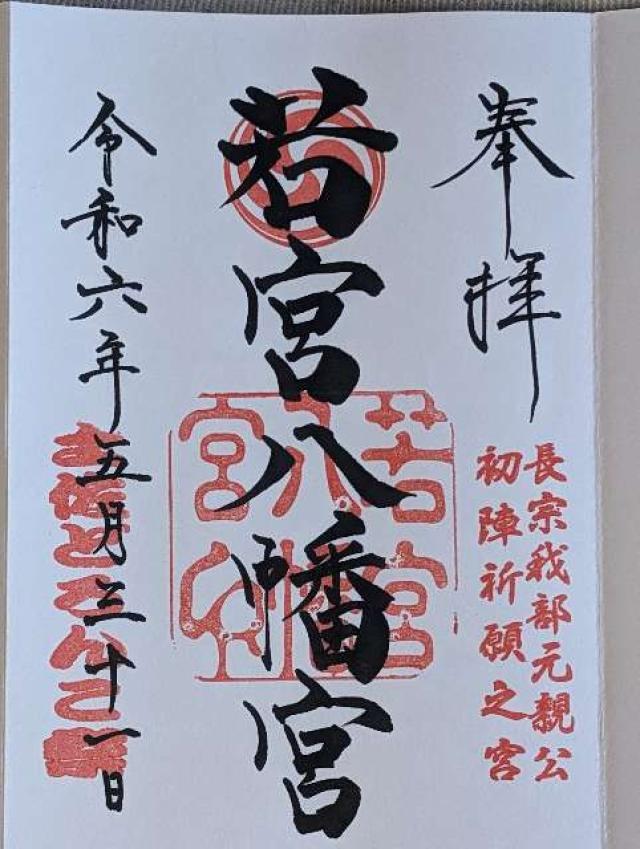 奉拝
長宗我部元親公
初陣祈願之宮
若宮八幡宮
若宮八幡宮
令和六年五月三十一日